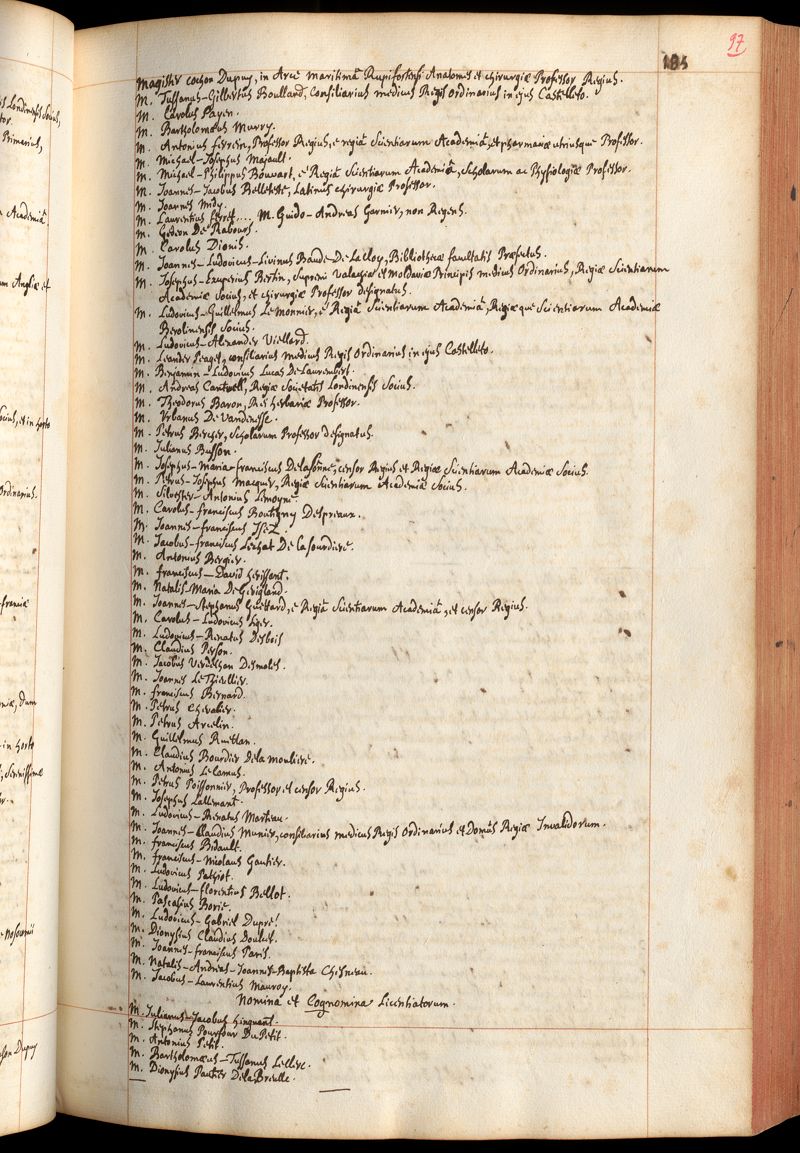 97
185
Magister Cochon Dupuy, in Arce maritimâ Rupifortensi Anatomes et chirurgiæ Professor Regius.
M. Tussanus-Gilbertus Boullard, Consiliarius medicus Regis Ordinarius in ejus Castelleto.
M. Carolus Payen.
M. Bartholomæus Murry.
M. Antonius Ferrein, Professor Regius, e regiâ Scientiarum Academiâ, et pharmaciæ utriusque Professor.
M. Michael-Josephus Majault.
M. Michael-Philippus Bouvart, e Regiâ Scientiarum Academiâ, Scholarum ac Physiologiæ Professor.
M. Joannes-Jacobus Belleteste, Latinus chirurgiæ Professor.
M. Joannes Midy.
M. Laurentius Ferret.... M. Guido-Andreas Garnier, non Regens.
M. Gedeon De Rabours.
M. Carolus Dionis.
M. Joannes-Ludovicus-Livinus Baude-De La Cloy, Bibliothecæ facultatis Præfectus.
M. Josephus-Exuperius Bertin, Supremi Valachiæ et Moldaviæ Principis medicus Ordinarius, Regiæ Scientiarum
Academiæ Socius, et chirurgiæ Professor designatus.
M. Ludovicus-Guillelmus Le Monnier, e Regiâ Scientiarum Academiâ, Regiæque Scientiarum Academiæ
Berolinensis Socius.
M. Ludovicus-Alexander Viellard.
M. Leander Peaget, consiliarius medicus Regis Ordinarius in ejus Castelleto.
M. Benjamin-Ludovicus Lucas De Laurembert.
M. Andreas Cantwell, Regiæ Societatis Londinensis Socius.
M. Theodorus Baron, Rei herbariæ Professor.
M. Urbanus De Vandenesse.
M. Petrus Bercher, Scholarum Professor designatus.
M. Julianus Busson.
M. Josephus-Maria-Franciscus Delasonne, censor Regius et Regiæ Scientiarum Academiæ Socius.
M. Petrus-Josephus Macquer, Regiæ Scientiarum Academiæ Socius.
M. Silvester-Antonius Lemoyne.
M. Carolus-Franciscus Boutigny Despreaux.
M. Joannes-Franciscus Isez.
M. Jacobus-Franciscus Lechat De la Sourdiere.
M. Antonius Bergier.
M. Franciscus-David Herissant.
M. Natalis-Maria De Gevigland.
M. Joannes-Stephanus Guettard, e Regiâ Scientiarum Academiâ, et censor Regius.
M. Carolus-Ludovicus Liger.
M. Ludovicus-Renatus Desbois
M. Claudius Person.
M. Jacobus Verdelhan Desmoles.
M. Joannes Le Thieullier.
M. Franciscus Bernard.
M. Petrus Chevalier.
M. Petrus Arcelin.
M. Guillelmus Ruellan.
M. Claudius Bourdier Dela mouliere.
M. Antonius Le Camus.
M. Petrus Poissonnier, Professor et censor Regius.
M. Josephus Lallemant.
M. Ludovicus-Renatus Marteau.
M. Joannes-Claudius Munier, consiliarius medicus Regis Ordinarius et Domûs Regiæ Invalidorum.
M. Franciscus Bidault.
M. Franciscus-Nicolaus Gautier.
M. Ludovicus Pathiot.
M. Ludovicus-Florentius Bellot.
M. Pascasius Borie.
M. Ludovicus-Gabriel Dupré.
M. Dionysius Claudius Doulcet.
M. Joannes-Franciscus Paris.
M. Natalis-Andreas-Joannes-Baptista Chesneau.
M. Jacobus-Laurentius Mauroy.
Nomina et Cognomina Licentiatorum.
M. Julianus-Jacobus Hinguant.
M. Stephanus Pourfour Du Petit.
M. Antonius Petit.
M. Bartholomæus-Tussanus Leclerc.
M. Dionysius Pautier Dela Breulle.